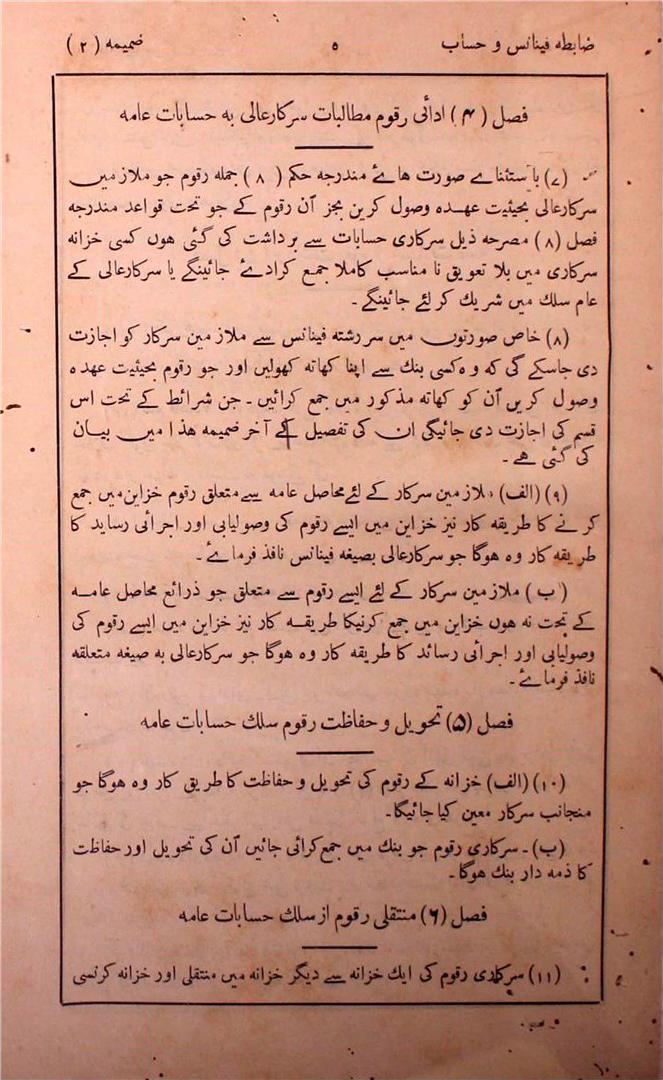 ضابطه فینانس و حساب ۵ ضمیمه (۲)
فصل (۴) ادائی رقوم مطالبات سرکارعالی به حسابات عامه
(۷) باستثنائے صورت هائے مندرجه حکم (۸) جمله رقوم جو ملازمین
سرکارعالی بحیثیت عهده وصول کرین بجز آن رقوم کے جو تحت قواعد مندرجه
فصل (۸) مصرحه ذیل سرکاری حسابات سے برداشت کی گئی هوں کسی خزانه
سرکاری میں بلا تعویق نا مناسب کاملا جمع کرادئے جائینگے یا سرکارعالی کے
عام سلك میں شریك کر لئے جائینگے ـ
(۸) خاص صورتوں میں سررشته فینانس سے ملازمین سرکار کو اجازت
دی جاسکے گی که وه کسی بنك سے اپنا کهاته کهولیں اور جو رقوم بحیثیت عهده
وصول کریں آن کو کهاته مذکور میں جمع کرائیں ـ جن شرائط کے تحت اس
قسم کی اجازت دی جائیگی ان کی تفصیل کے آخر ضمیمه هذا میں بیان
کی گئی هے ـ
(۹) (الف) ملازمین سرکار کے لئے محاصل عامه سے متعلق رقوم خزاین میں جمع
کرنے کا طریقه کار نیز خزاین میں ایسے رقوم کی وصولیابی اور اجرائی رساید کا
طریقه کار وه هوگا جو سرکارعالی بصیغه فینانس نافذ فرمائے ـ
(ب) ملازمین سرکار کے لئے ایسے رقوم سے متعلق جو ذرائع محاصل عامه
کے تحت نه هوں خزاین میں جمع کرنیکا طریقه کار نیز خزاین میں ایسے رقوم کی
وصولیابی اور اجرائی رسائد کا طریقه کار وه هوگا جو سرکارعالی به صیغه متعلقه
نافذ فرمائے ـ
فصل (۵) تحویل و حفاظت رقوم سلك حسابات عامه
(۱۰) (الف) خزانه کے رقوم کی تحویل و حفاظت کا طریق کار وه هوگا جو
منجانب سرکار معین کیا جائیگا ـ
(ب) ـ سرکاری رقوم جو بنك میں جمع کرائی جائیں آن کی تحویل اور حفاظت
کا ذمه دار بنك هوگا ـ
فصل (۶) منتقلی رقوم از سلك حسابات عامه
(۱۱) سرکاری رقوم کی ایك خزانه سے دیگر خزانه میں منتقلی اور خزانه کرنسی